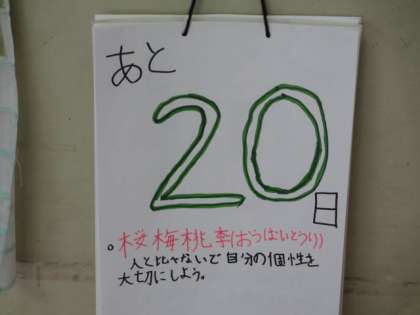 あと
20
日
。桜梅桃李(おうばいとうり)
人と比べないで自分の個性を
大切にしよう。